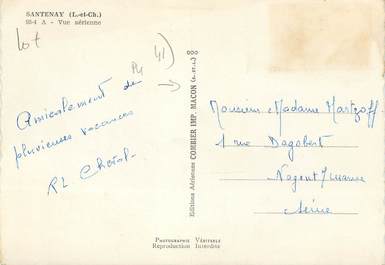 SANTENAY (L.-et-Ch.)
93-4 A - Vue aérienne
Lot
41)
Amicalement de
pluvieuses vacances
Monsieur Madame
1 rue Dagobert
Nogent s/Marne
Seine
Editions Aériennes COMBIER IMP. MACON (S.-et-L.)
PHOTOGRAPHIE VÉRITABLE
Reproduction Interdite